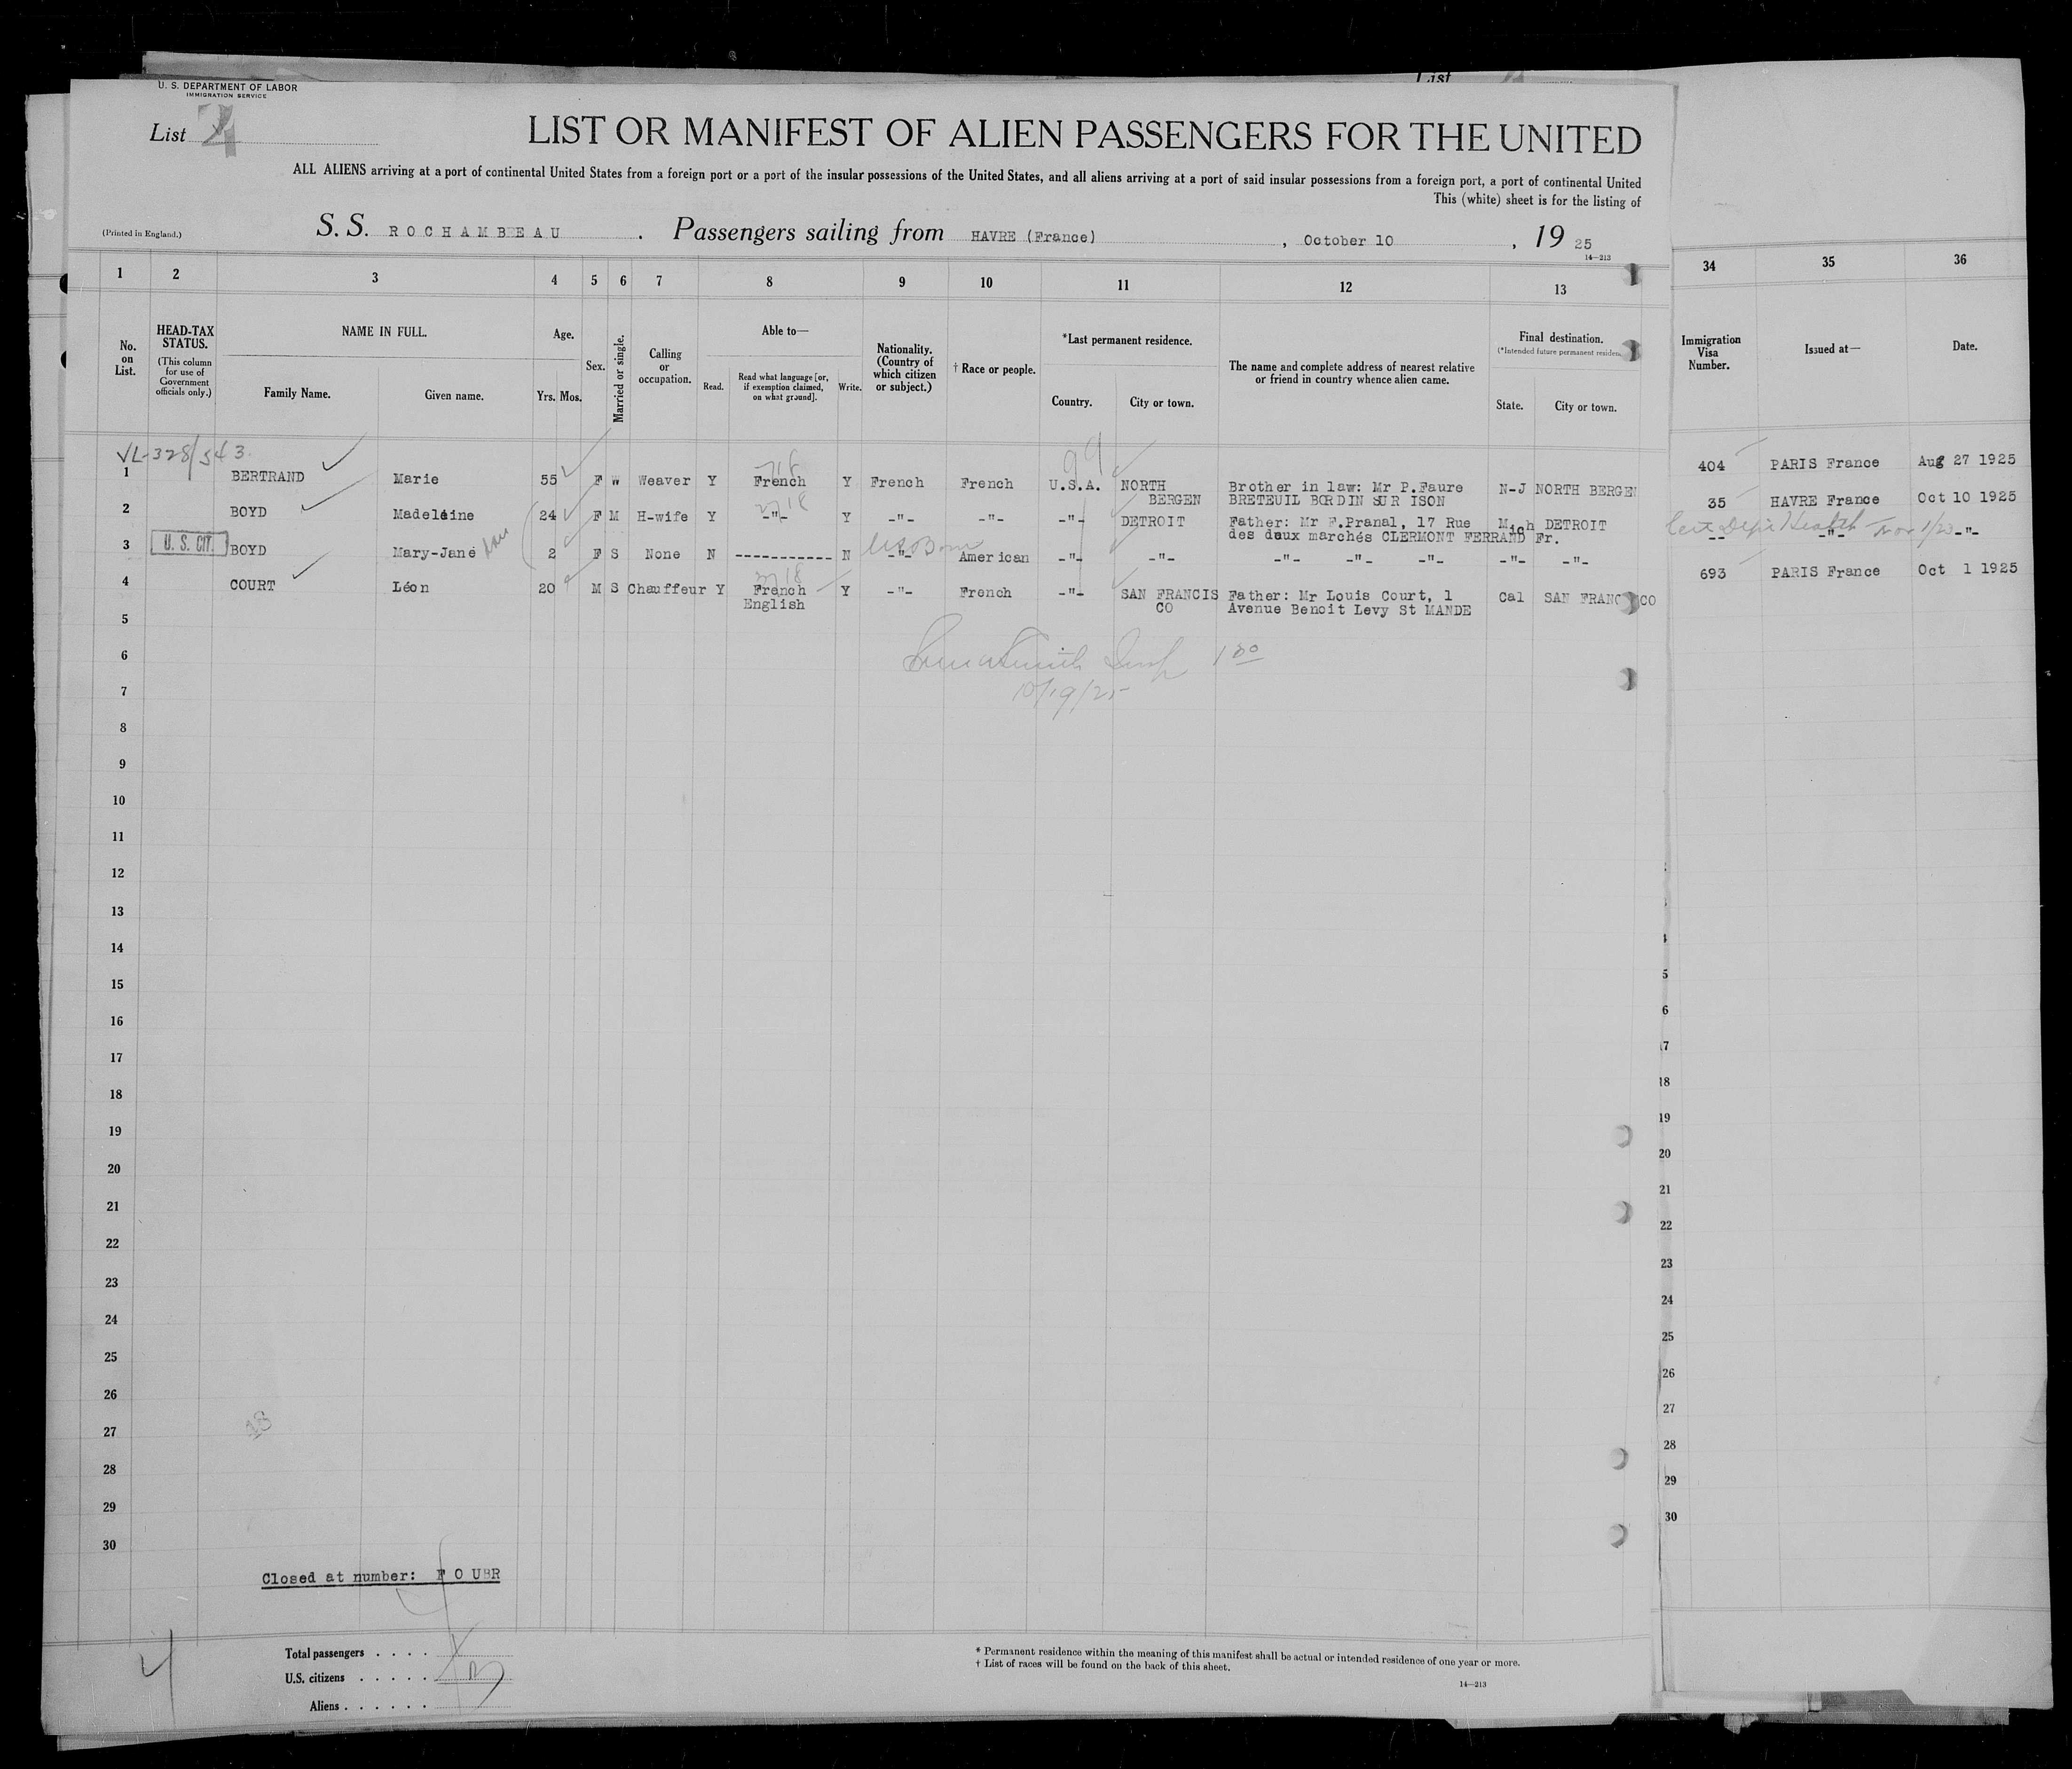 List
U. S. DEPARTMENT OF LABOR
IMMIGRATION SERVICE
List 4
LIST OR MANIFEST OF ALIEN PASSENGERS FOR THE UNITED
ALL ALIENS arriving at a port of continental United States from a foreign port or a port of the insular possessions of the United States, and all aliens arriving at a port of said insular possessions from a foreign port, a port of continental United
This (white) sheet is for the listing of
(Printed in England.)
S. S. ROCHAMBEAU . Passengers sailing from HAVRE (France) , October 10 , 19 25
14—213
1 2 3 4 5 6 7 8 9 10 11 12 13 34 35 36
No. on List.
HEAD-TAX STATUS.
(This column for use of Government officials only.)
NAME IN FULL.
Family Name. Given name.
Age.
Yrs. Mos.
Sex.
Married or single.
Calling or occupation.
Able to—
Read. Read what language [or, if exemption claimed, on what ground]. Write.
Nationality. (Country of which citizen or subject.)
† Race or people.
*Last permanent residence.
Country. City or town.
The name and complete address of nearest relative or friend in country whence alien came.
Final destination.
(*Intended future permanent residen
State. City or town.
Immigration Visa Number.
Issued at—
Date.
VL-328/543
99
1 BERTRAND Marie 55 F W Weaver Y French Y French French U.S.A. NORTH BERGEN Brother in law: Mr P.Faure N-J NORTH BERGEN 404 PARIS France Aug 27 1925
BRETEUIL BORDIN SUR ISON
2 BOYD Madeleine 24 F M H-wife Y -"- Y -"- -"- -"- DETROIT Father: Mr F.Pranal, 17 Rue Mich DETROIT 35 HAVRE France Oct 10 1925
des deux marchés CLERMONT FERRAND Fr.
3 U. S. CIT. BOYD Mary-Jane 2 F S None N ----------- N -"- US Born American -"- -"- -"- -"- -"- -"- -"- -- -"- -"-
4 COURT Léon 20 M S Chauffeur Y French Y -"- French -"- SAN FRANCIS Father: Mr Louis Court, 1 Cal SAN FRANCISCO 693 PARIS France Oct 1 1925
English CO Avenue Benoit Levy St MANDE
5
6
10/19/25
7
8
9
10
11
12
13
14
15
16
17
18
19
20
21
22
23
24
25
26
27
28
29
30
18
19
20
21
22
23
24
25
26
27
28
29
30
Closed at number: FOUR
Total passengers . . . .
U.S. citizens . . . . .
Aliens . . . . . .
* Permanent residence within the meaning of this manifest shall be actual or intended residence of one year or more.
† List of races will be found on the back of this sheet.
14—213